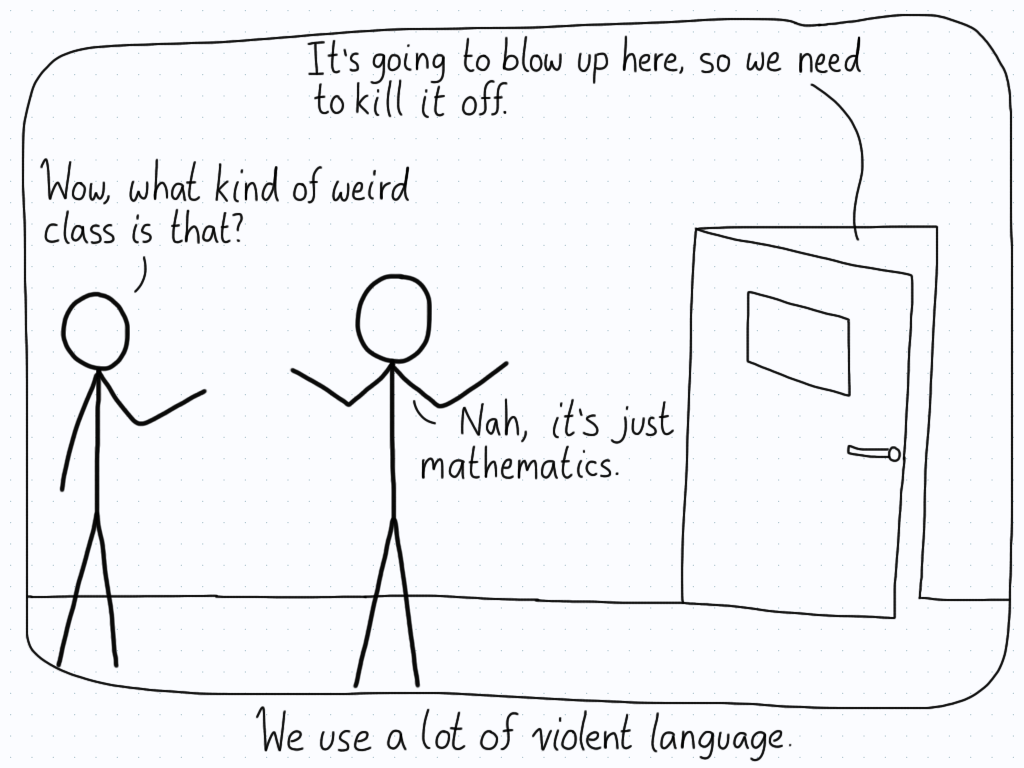 It's going to blow up here, so we need
to kill it off.
Wow, what kind of weird
class is that?
Nah, it's just
mathematics.
We use a lot of violent language.